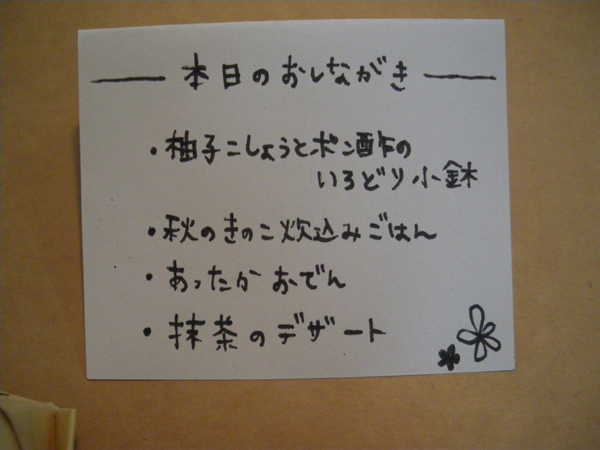 本日のおしながき
・柚子こしょうとポン酢の
いろどり小鉢
・秋のきのこ炊込みごはん
・あったかおでん
・抹茶のデザート